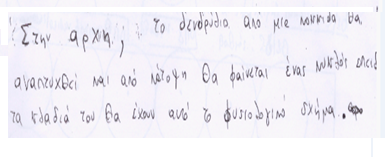 Στην αρχη; το δενδρύδια από μια κουκιδα θα
αναπτυχθεί και από κάτοψη θα φαίνεται ένας κυκλός επειδ
τα κλαδιά του θα έχουν αυτό το φυσιολογικό σχήμα.